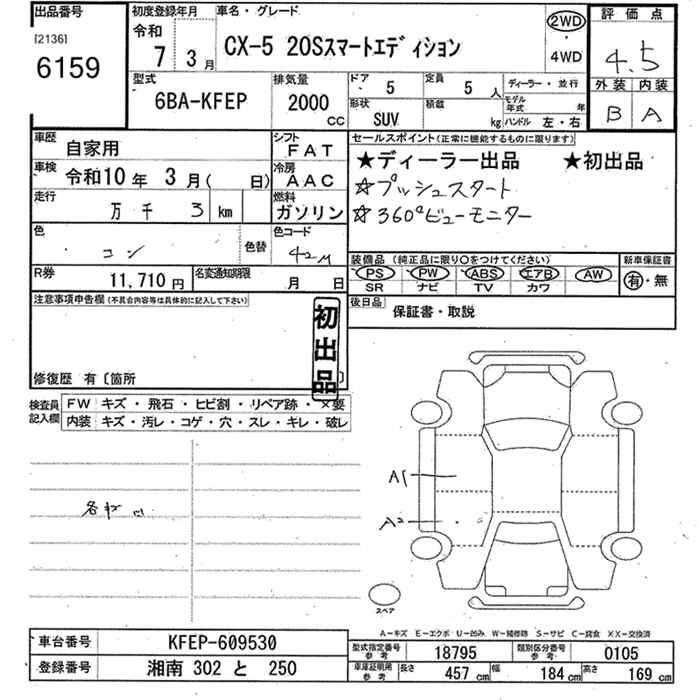 出品番号
[2136]
6159
初度登録年月
令和
7 3月
車名・グレード
CX-5 20Sスマートエディション
2WD
・
4WD
評価点
4.5
外装 内装
B A
型式
6BA-KFEP
排気量
2000
CC
ドア
5
定員
5人
ディーラー・並行
形状
SUV
積載
kg
モデル年式 年
ハンドル 左・右
車歴
自家用
シフト
FAT
車検
令和10年 3月( 日)
冷房
AAC
走行
万 千 3 km
燃料
ガソリン
色
コン
色替
色コード
42M
R券
11,710円
名変通知期限
月 日
セールスポイント(正常に機能するものに限ります)
★ディーラー出品 ★初出品
☆プッシュスタート
☆360°ビューモニター
装備品 (純正品に限り○をつけてください)
新車保証書
PS PW ABS エアB AW
SR ナビ TV カワ
有・無
後日品
保証書・取説
注意事項申告欄(不具合内容等は具体的に記入して下さい)
初出品
修復歴 有〔箇所 〕
検査員記入欄
FW キズ・飛石・ヒビ割・リペア跡・×要
内装 キズ・汚レ・コゲ・穴・スレ・キレ・破レ
A1
A2
スペア
A-キズ E-エクボ U-凹み W-補修跡 S-サビ C-腐食 XX-交換済
車台番号
KFEP-609530
登録番号
湘南 302 と 250
型式指定番号
参考
18795
類別区分番号
参考
0105
車庫証明用
参考
長さ 457cm 幅 184cm 高さ 169cm